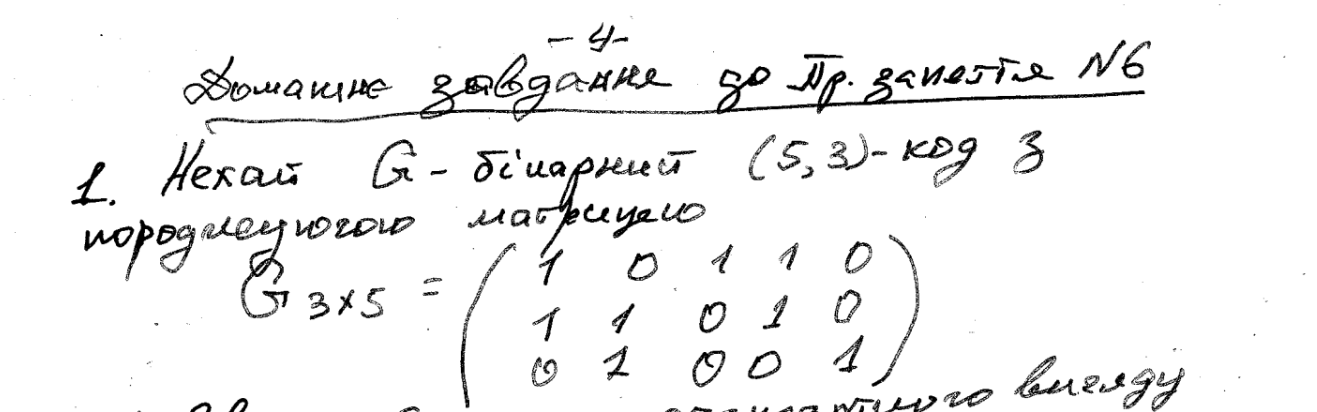 - 4 -
Домашнє завдання до Пр. заняття №6
1. Нехай G - бінарний (5,3)-код з
породжуючою матрицею
G 3x5 = ( 1 0 1 1 0
1 1 0 1 0
0 1 0 0 1 )
стандартного вигляду